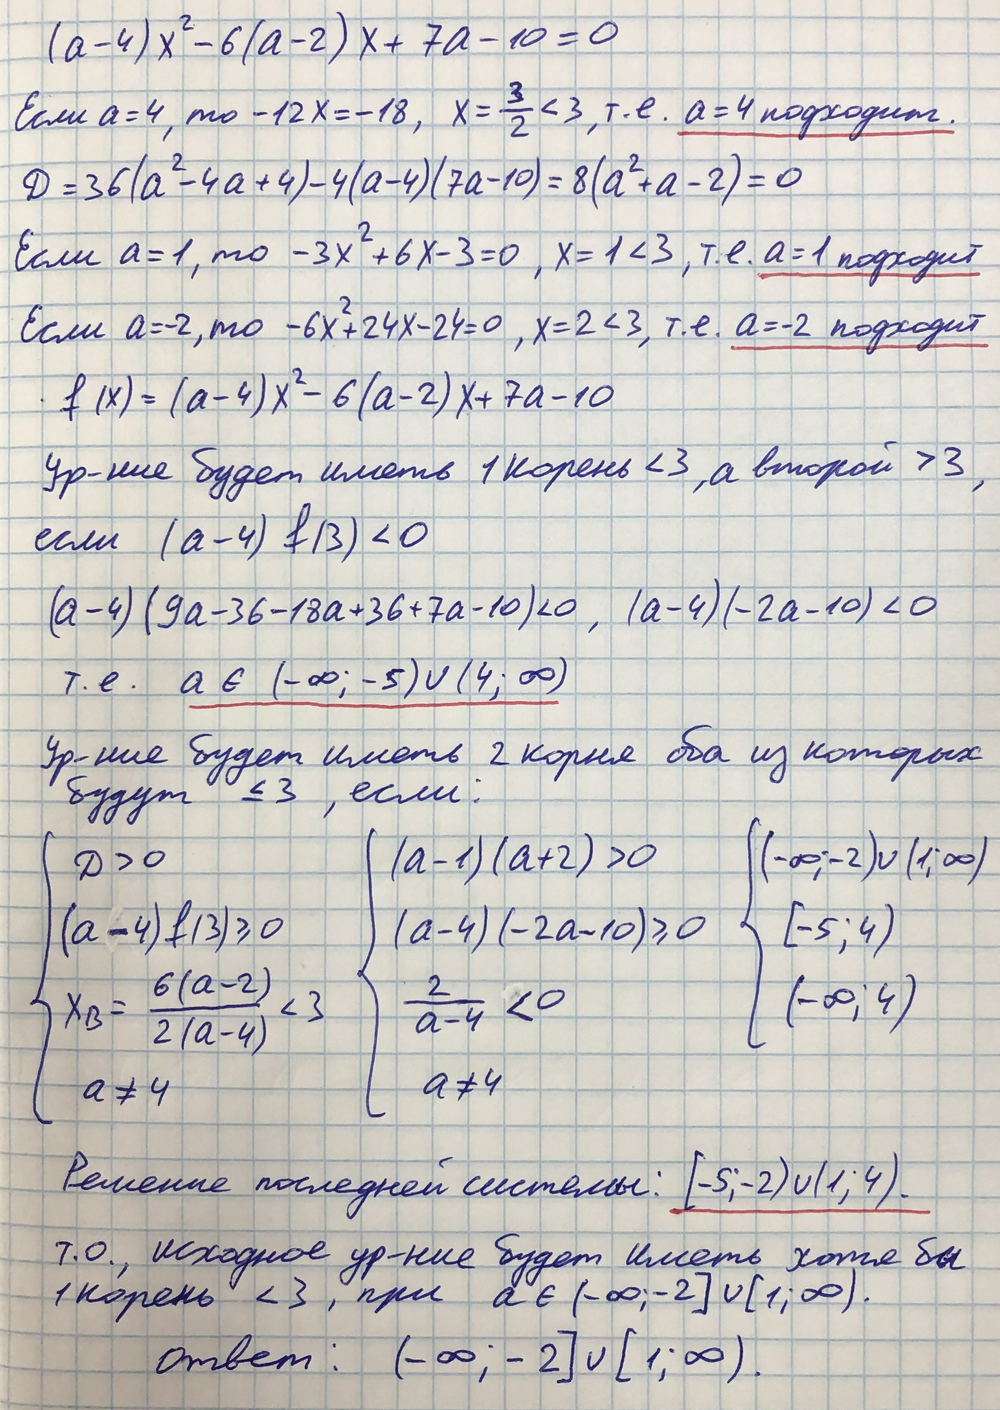 (a-4)x²-6(a-2)x+7a-10=0
Если a=4, то -12x=-18, x=3/2<3, т.е. a=4 подходит.
D=36(a²-4a+4)-4(a-4)(7a-10)=8(a²+a-2)=0
Если a=1, то -3x²+6x-3=0, x=1<3, т.е. a=1 подходит
Если a=-2, то -6x²+24x-24=0, x=2<3, т.е. a=-2 подходит
f(x)=(a-4)x²-6(a-2)x+7a-10
Ур-ние будет иметь 1 корень <3, а второй >3,
если (a-4) f(3)<0
(a-4)(9a-36-18a+36+7a-10)<0, (a-4)(-2a-10)<0
т.е. a∈(-∞;-5)∪(4;∞)
Ур-ние будет иметь 2 корня оба из которых
будут ≤3, если:
D>0 (a-1)(a+2)>0 (-∞;-2)∪(1;∞)
(a-4)f(3)≥0 (a-4)(-2a-10)≥0 [-5;4)
xв=6(a-2)/2(a-4)<3 2/a-4<0 (-∞;4)
a≠4 a≠4
Решение последней системы: [-5;-2)∪(1;4).
т.о., исходное ур-ние будет иметь хотя бы
1 корень <3, при a∈(-∞;-2]∪[1;∞).
ответ: (-∞;-2]∪[1;∞).